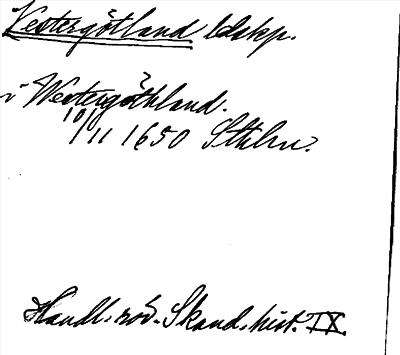 Vestergötland ldskp.
i Westergöthland.
10/11 1650 Sthlm.
Handl. röv. Skand. hist. IX.